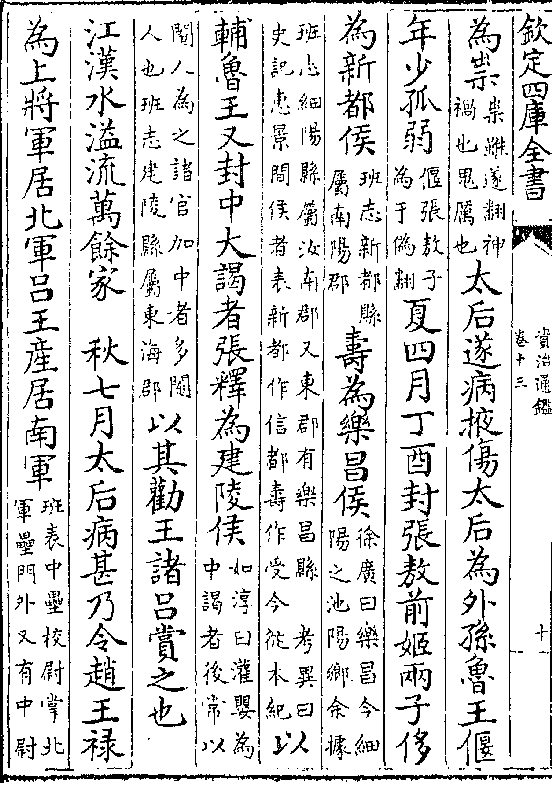 欽定四庫全書
資治通鑑
卷十三
十
為祟祟雖遂翻神禍也鬼厲也太后遂病掖傷太后為外孫魯王偃
年少孤弱偃張敖子為于偽翻夏四月丁酉封張敖前姬兩子侈
為新都侯班志新都縣屬南陽郡壽為樂昌侯徐廣曰樂昌今細陽之池陽鄉余據
班志細陽縣屬汝南郡又東郡有樂昌縣 考異曰史記惠景間侯者表新都作信都壽作受今從本紀以
輔魯王又封中大謁者張釋為建陵侯如淳曰灌嬰為中謁者後常以
閹人為之諸官加中者多閹人也班志建陵縣屬東海郡以其勸王諸呂賞之也
江漢水溢流萬餘家 秋七月太后病甚乃令趙王祿
為上將軍居北軍呂王產居南軍班表中壘校尉掌北軍壘門外又有中尉